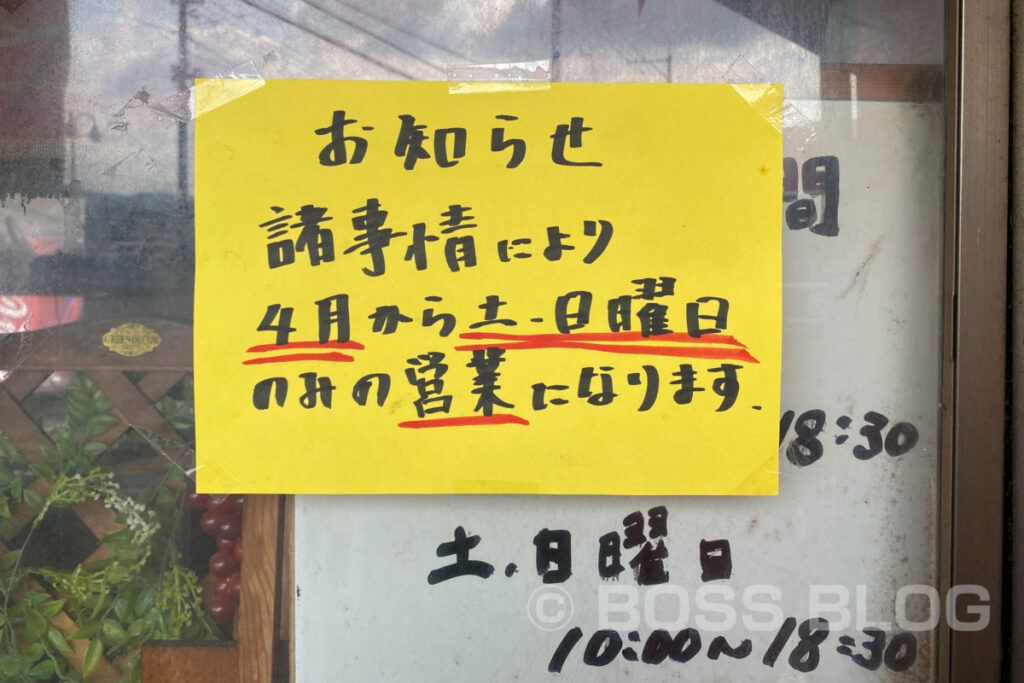 お知らせ
諸事情により
4月から土.日曜日
のみの営業になります.
間
18:30
土.日曜日
10:00~18:30
GREEN DECOR
© BOSS BLOG